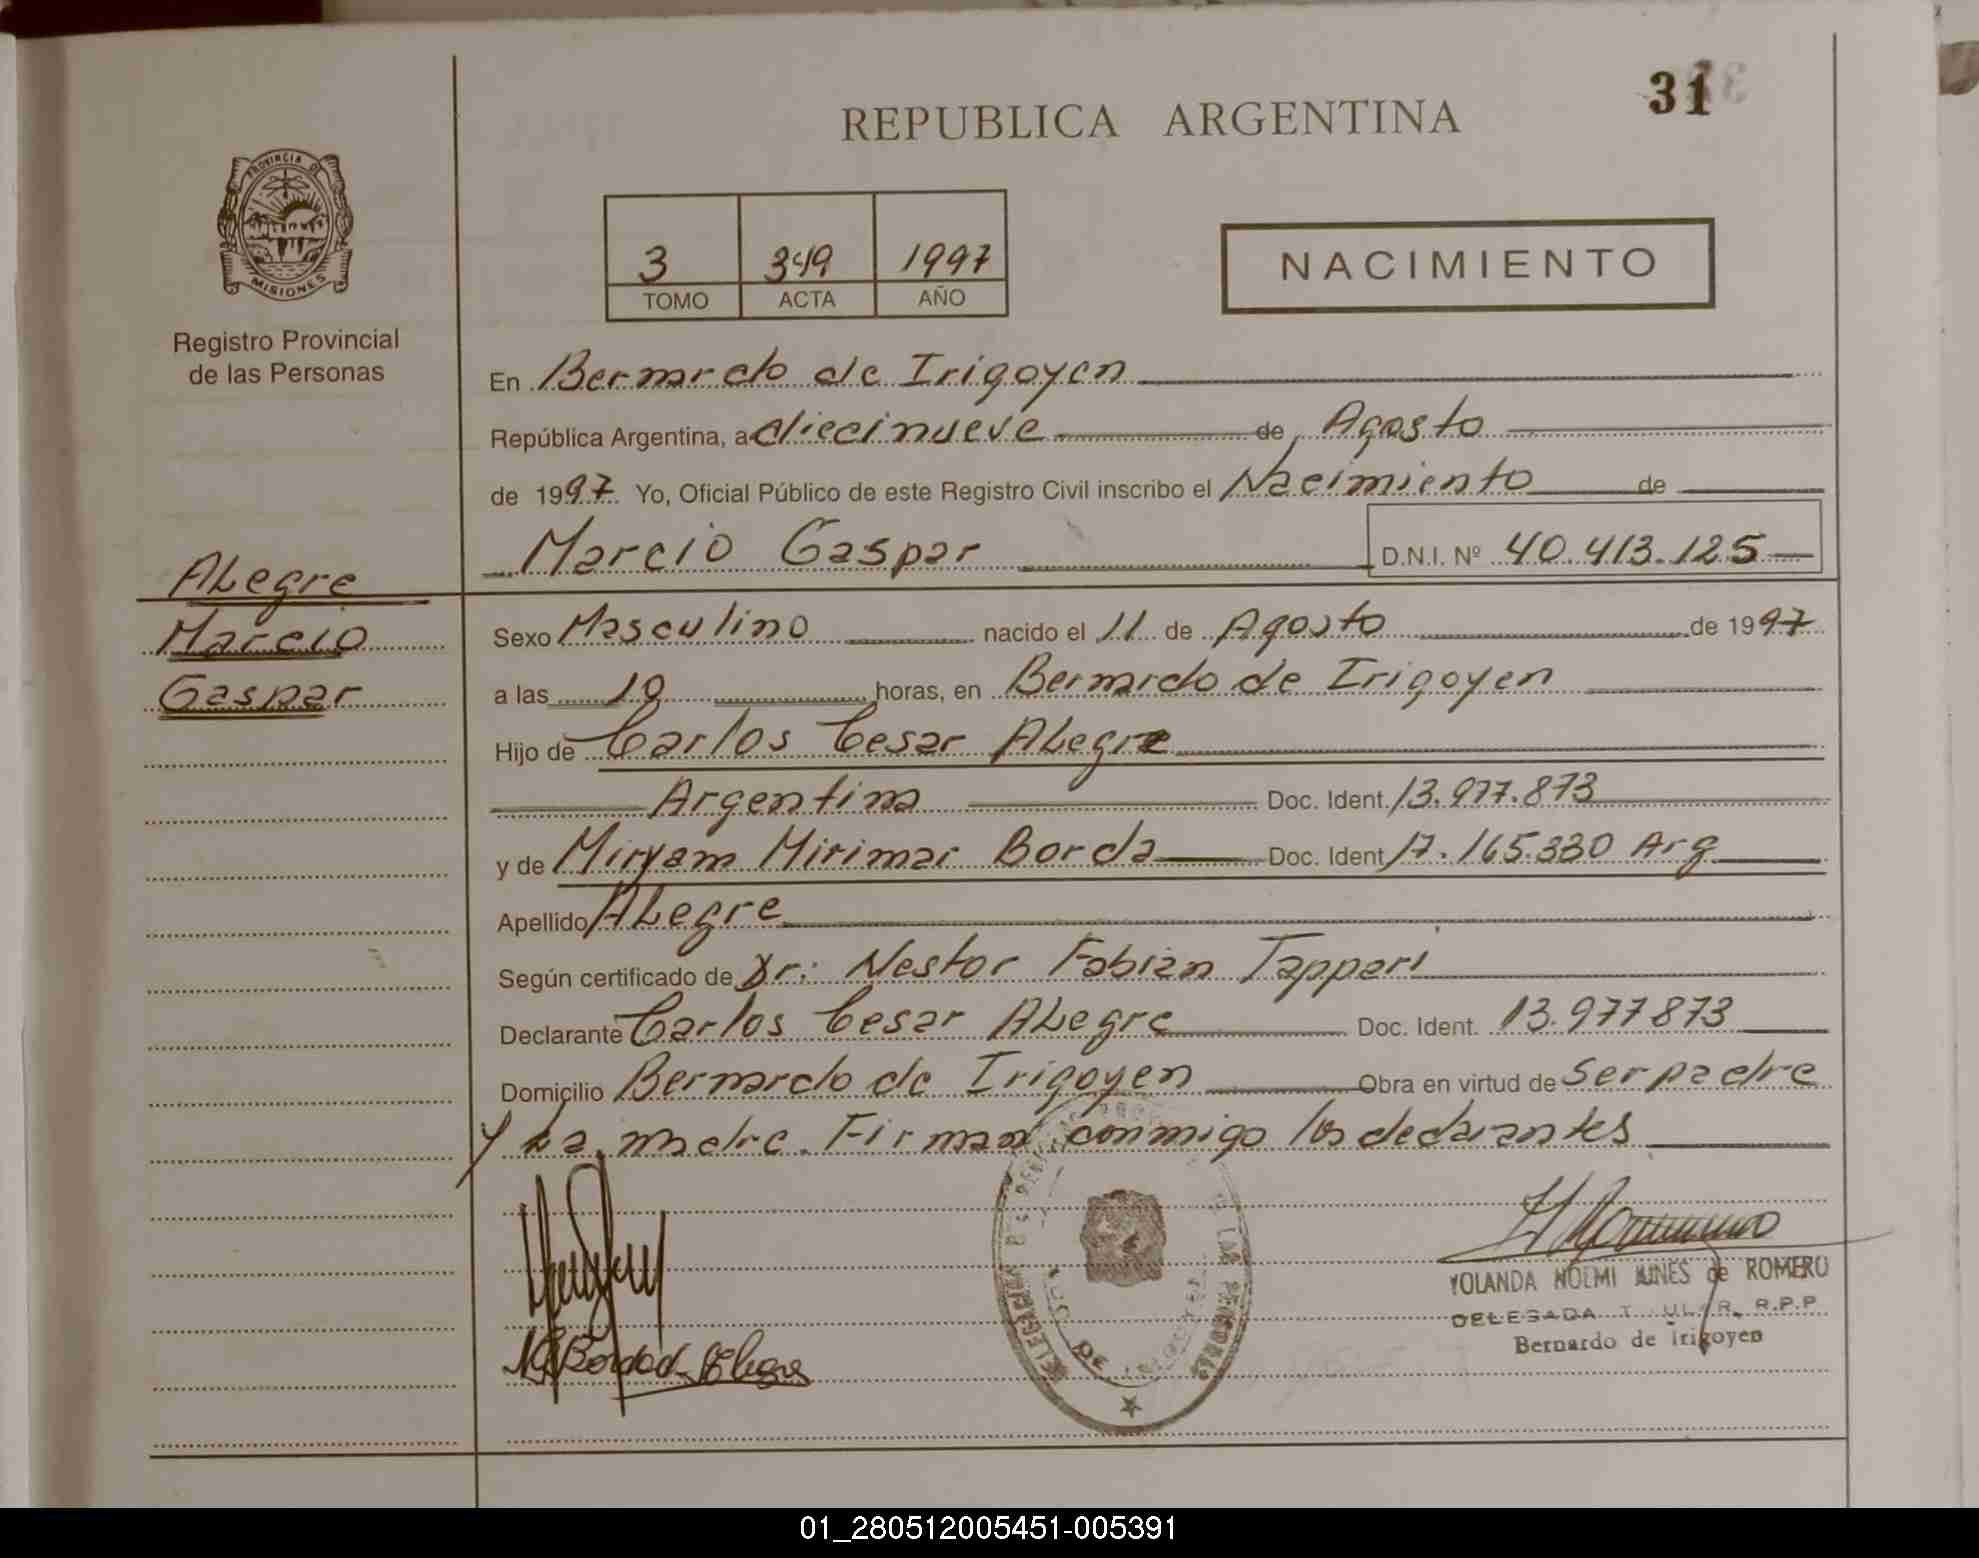 31
REPUBLICA ARGENTINA
PROVINCIA DE
MISIONES
Registro Provincial
de las Personas
3 349 1997
TOMO ACTA AÑO
NACIMIENTO
En Bernardo de Irigoyen
República Argentina, a diecinueve de Agosto
de 1997 Yo, Oficial Público de este Registro Civil inscribo el Nacimiento de
Marcio Gaspar D.N.I. Nº 40.413.125
Alegre
Marcio
Gaspar
Sexo Masculino nacido el 11 de Agosto de 1997
a las 10 horas, en Bernardo de Irigoyen
Hijo de Carlos Cesar Alegre
Argentina Doc. Ident. 13.977.873
y de Miryam Mirimar Borda Doc. Ident. 17.165.330 Arg
Apellido Alegre
Según certificado de Dr: Nestor Fabian Tappari
Declarante Carlos Cesar Alegre Doc. Ident. 13.977873
Domicilio Bernardo de Irigoyen Obra en virtud de ser padre
y La madre. Firman conmigo los declarantes
YOLANDA NOEMI de ROMERO
DELEGADA R.P.P.
Bernardo de Irigoyen
01_280512005451-005391